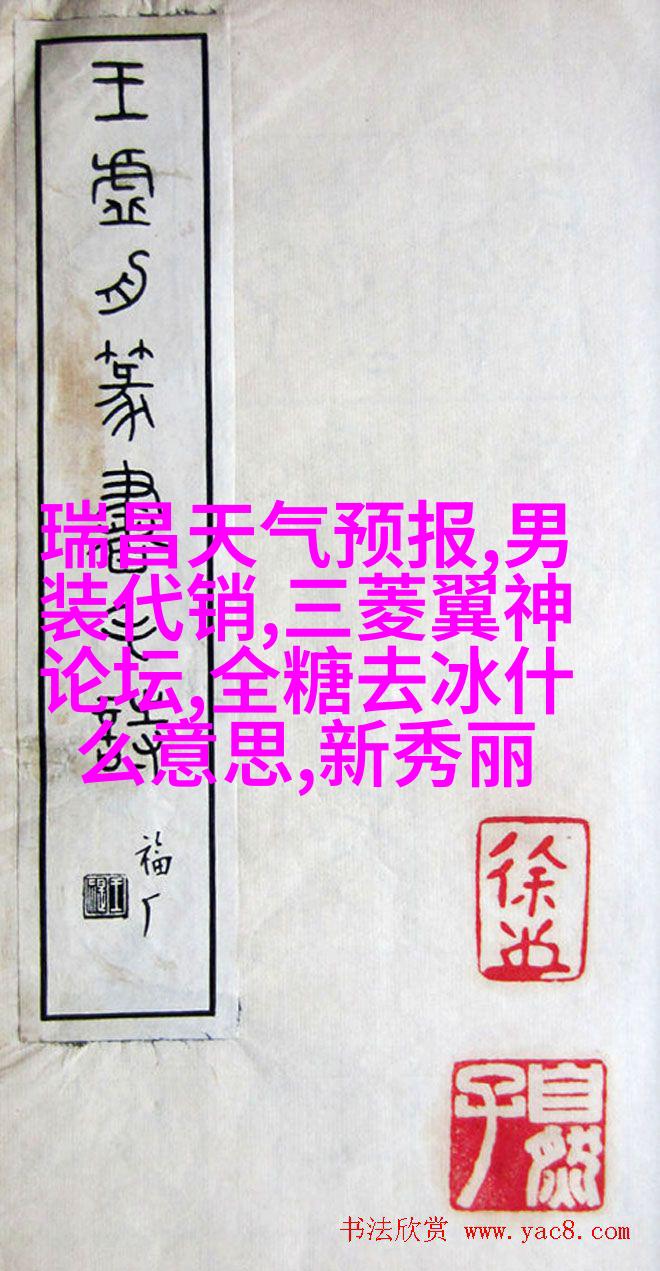 王虛舟篆書
福厂
瑞昌天气预报,男
装代销,三菱翼神
论坛,全糖去冰什
么意思,新秀丽
徐
自然子
书法欣赏 www.yac8.com